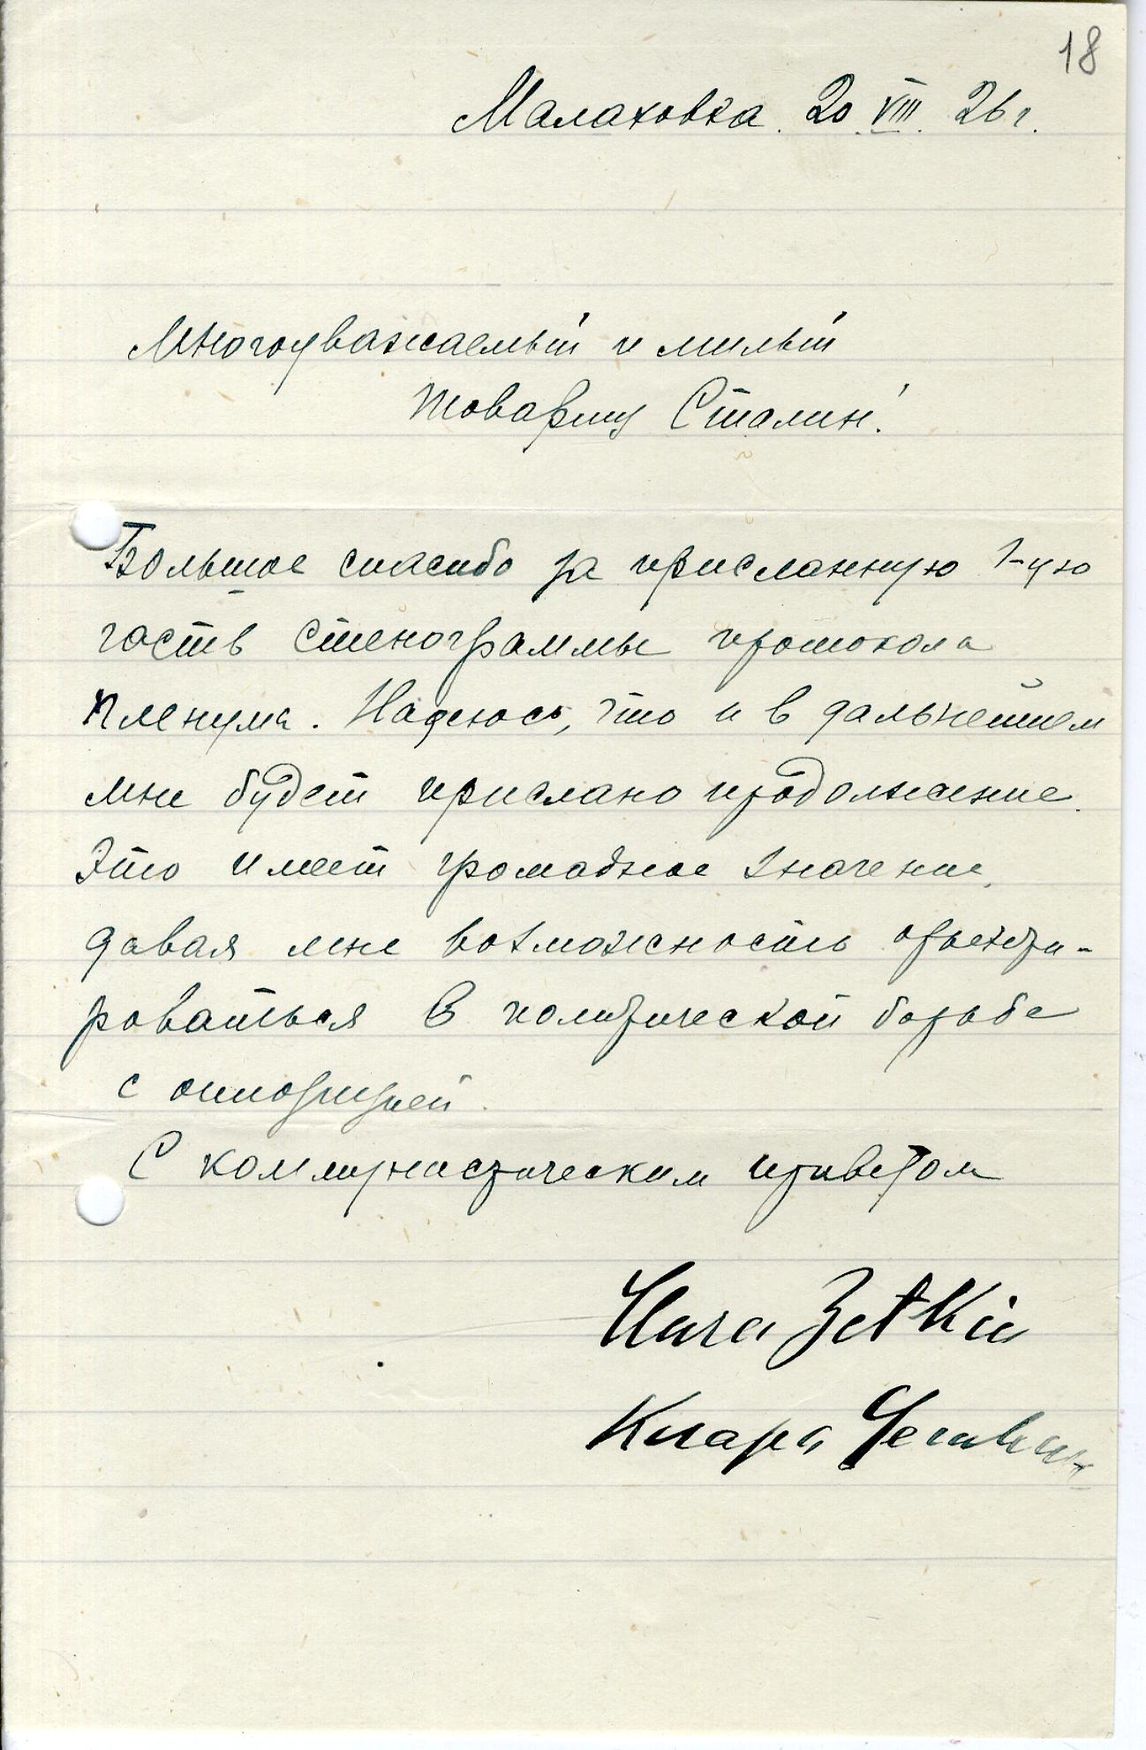 18
Малаховка. 20.VIII.26 г.
Многоуважаемый и милый
товарищ Сталин!
Большое спасибо за присланную 1-ую
часть стенограммы протокола
Пленума. Надеюсь, что и в дальнейшем
мне будет прислано продолжение.
Это имеет громадное значение,
давая мне возможность ориенти-
роваться в политической борьбе
с оппозицией.
С коммунистическим приветом
Clara Zetkin
Клара Цеткин